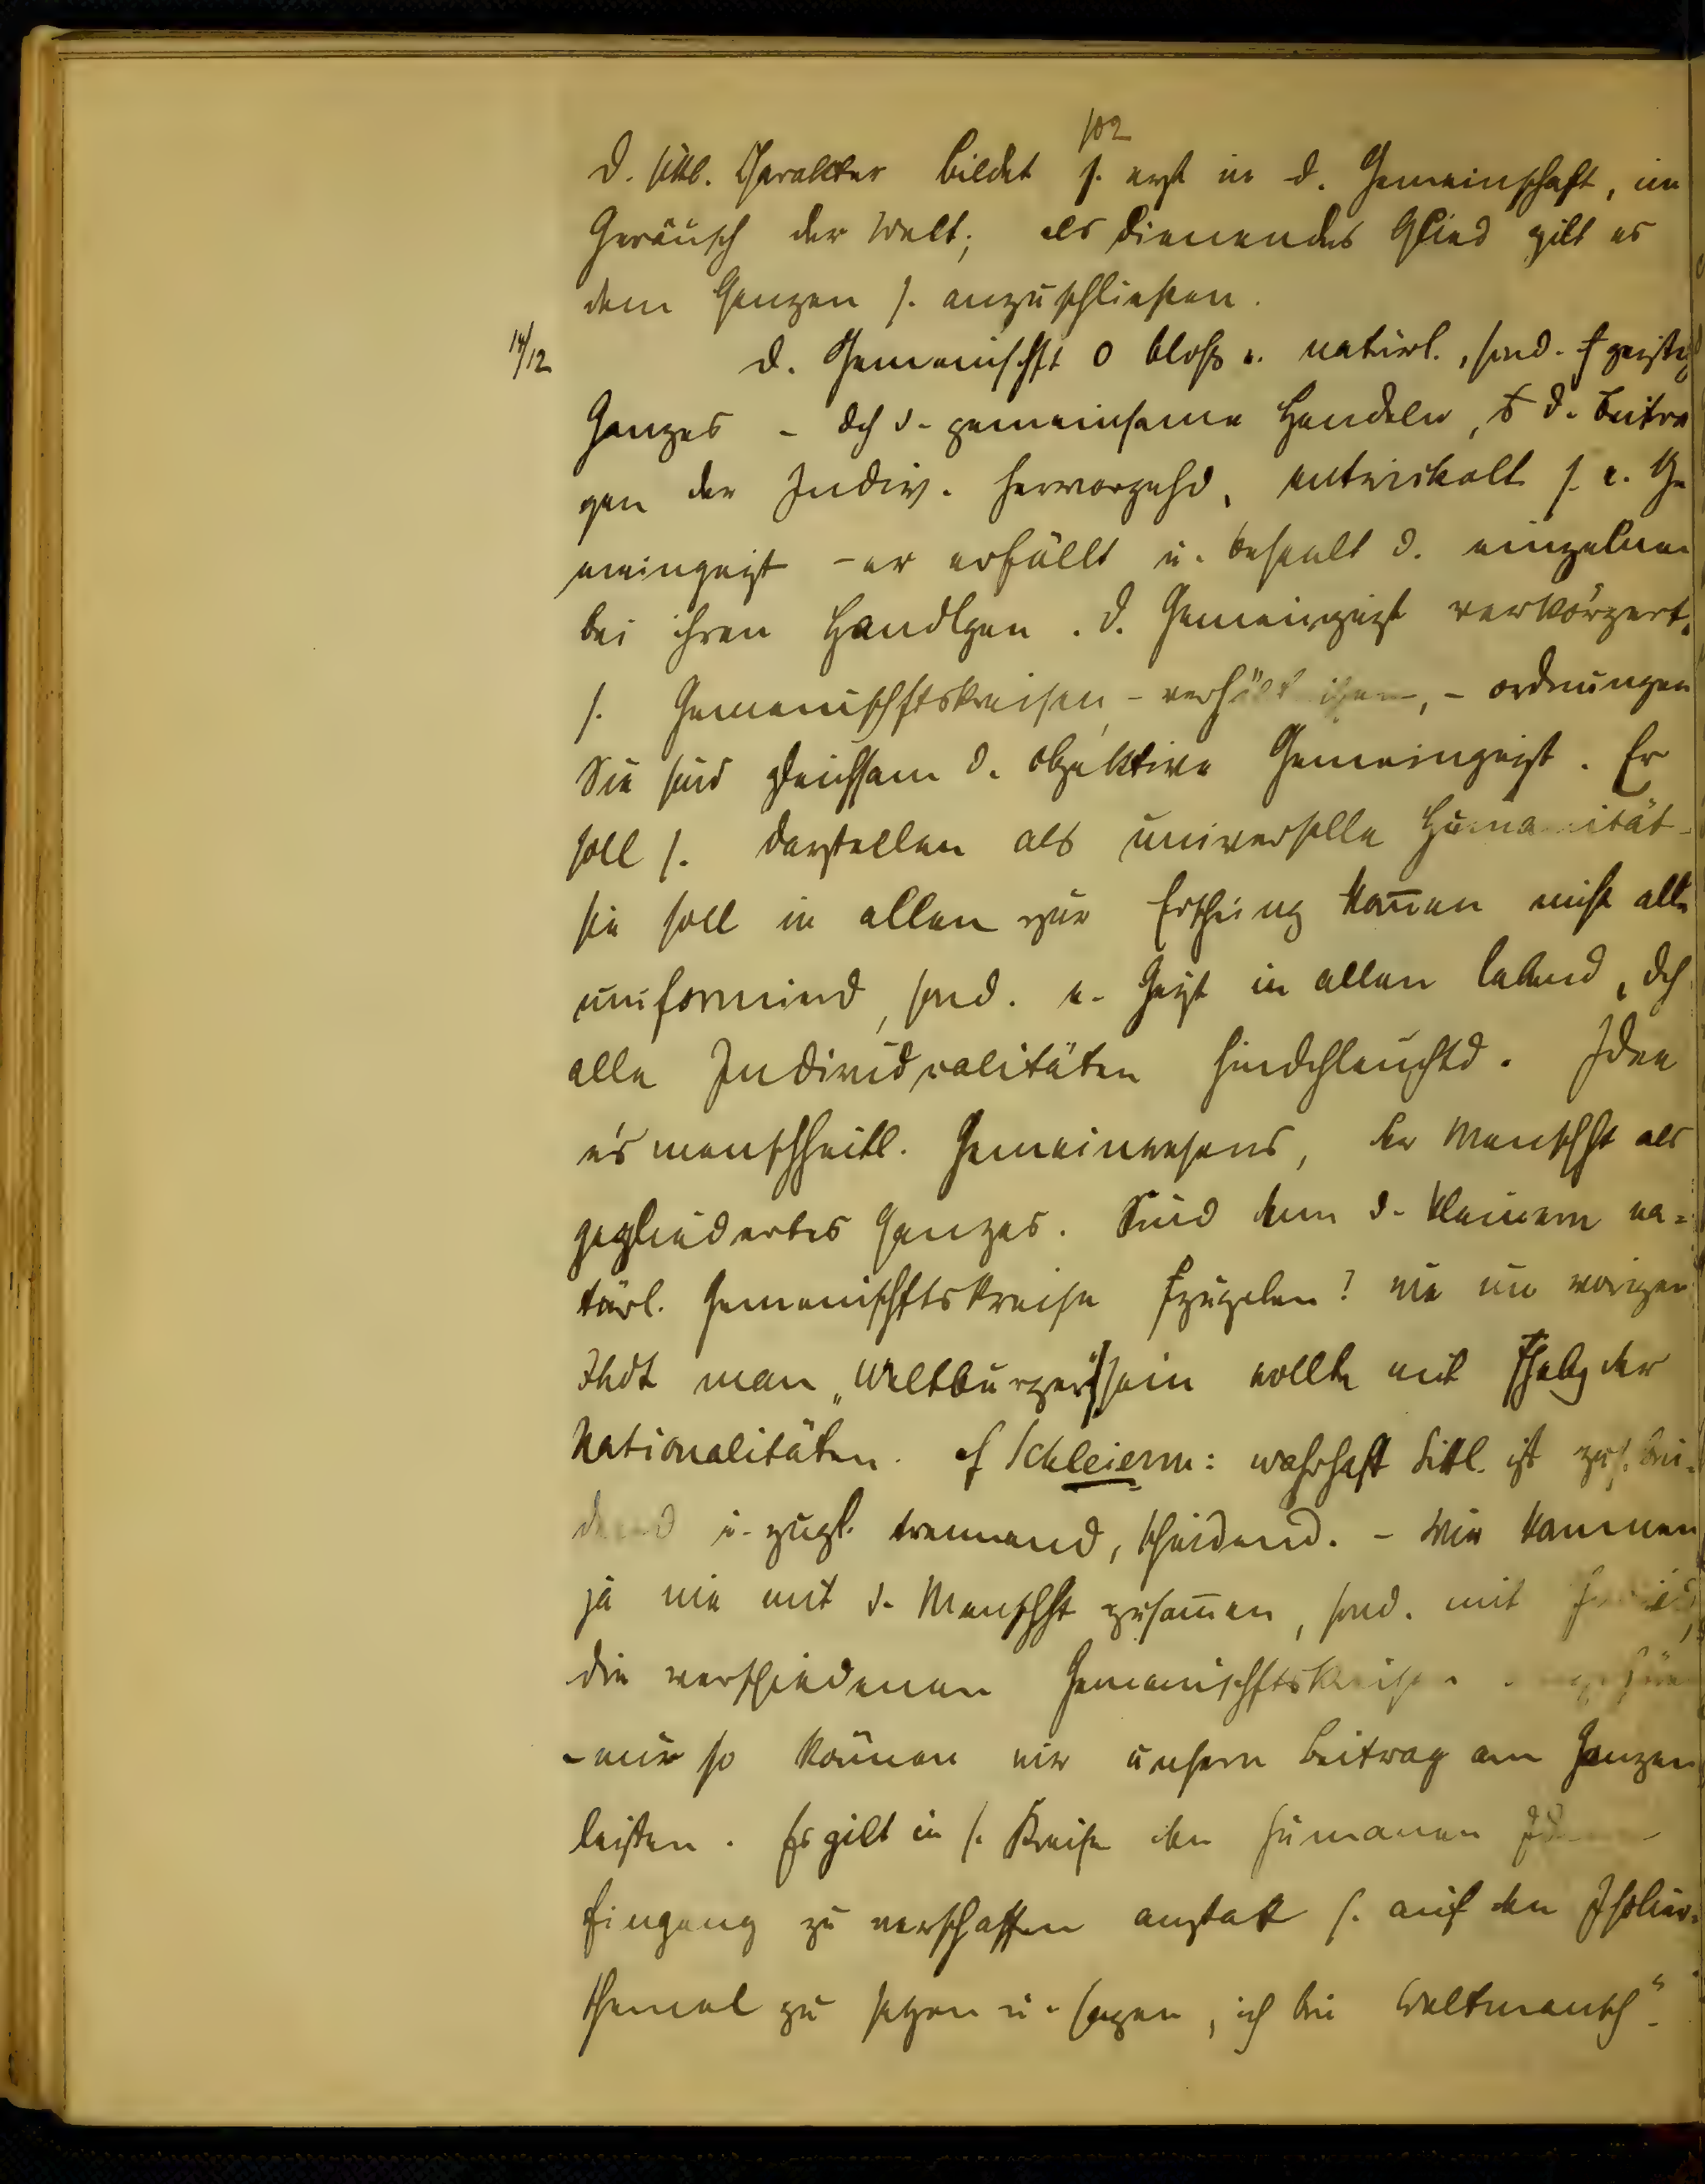 102
D. sittl. Charakter bildet s. erst in d. Gemeinschaft, im
Geräusch der Welt; als dienendes Glied gilt es
dem Ganzen s. anzuschließen.
14/12 D. Gemeinschft 0 bloß e. natürl., sond. geistig
Ganzes - dch d. gemeinsame Handeln, d. Beitra
gen der Indiv. hervorgehd, entwickelt s. e. Ge
meingeist - er erfüllt u. beseelt d. einzelnen
bei ihren Handlgen. D. Gemeingeist verkörpert
s. Gemeinschftskreisen, - verhältnissen, - ordnungen
Sie sind gleichsam d. objektive Gemeingeist. Er
soll s. darstellen als universelle Humanität -
sie soll in allen zur Erscheinung kom̅en nicht alle
uniformierd, sond. e. Geist in allen lebend, dch
alle Individualitäten hindchleuchtd. Idee
e's menschheitl. Gemeinwesens, der Menschht als
gegliedertes Ganzes. Sind denn d. kleinern na=
türl. Gemeinschftskreise? wie im vorigen
Jhdt man „Weltbürger" sein wollte mit der
Nationalitäten. cf Schleierm: wahrhaft sittl. ist zus. bin-
dend u. zugl. trennend, scheidend. - Wir kommen
ja nie mit d. Menschht zusam̅en, sond. mit
die verschiedenen Gemeinschftskreisen
- nur so können wir unsern Beitrag am Ganzen
leisten. Es gilt in s. Kreise den humanen
Eingang zu verschaffen anstatt s. auf den Isolier-
schemel zu setzen u. sagen, ich bin Weltmensch".